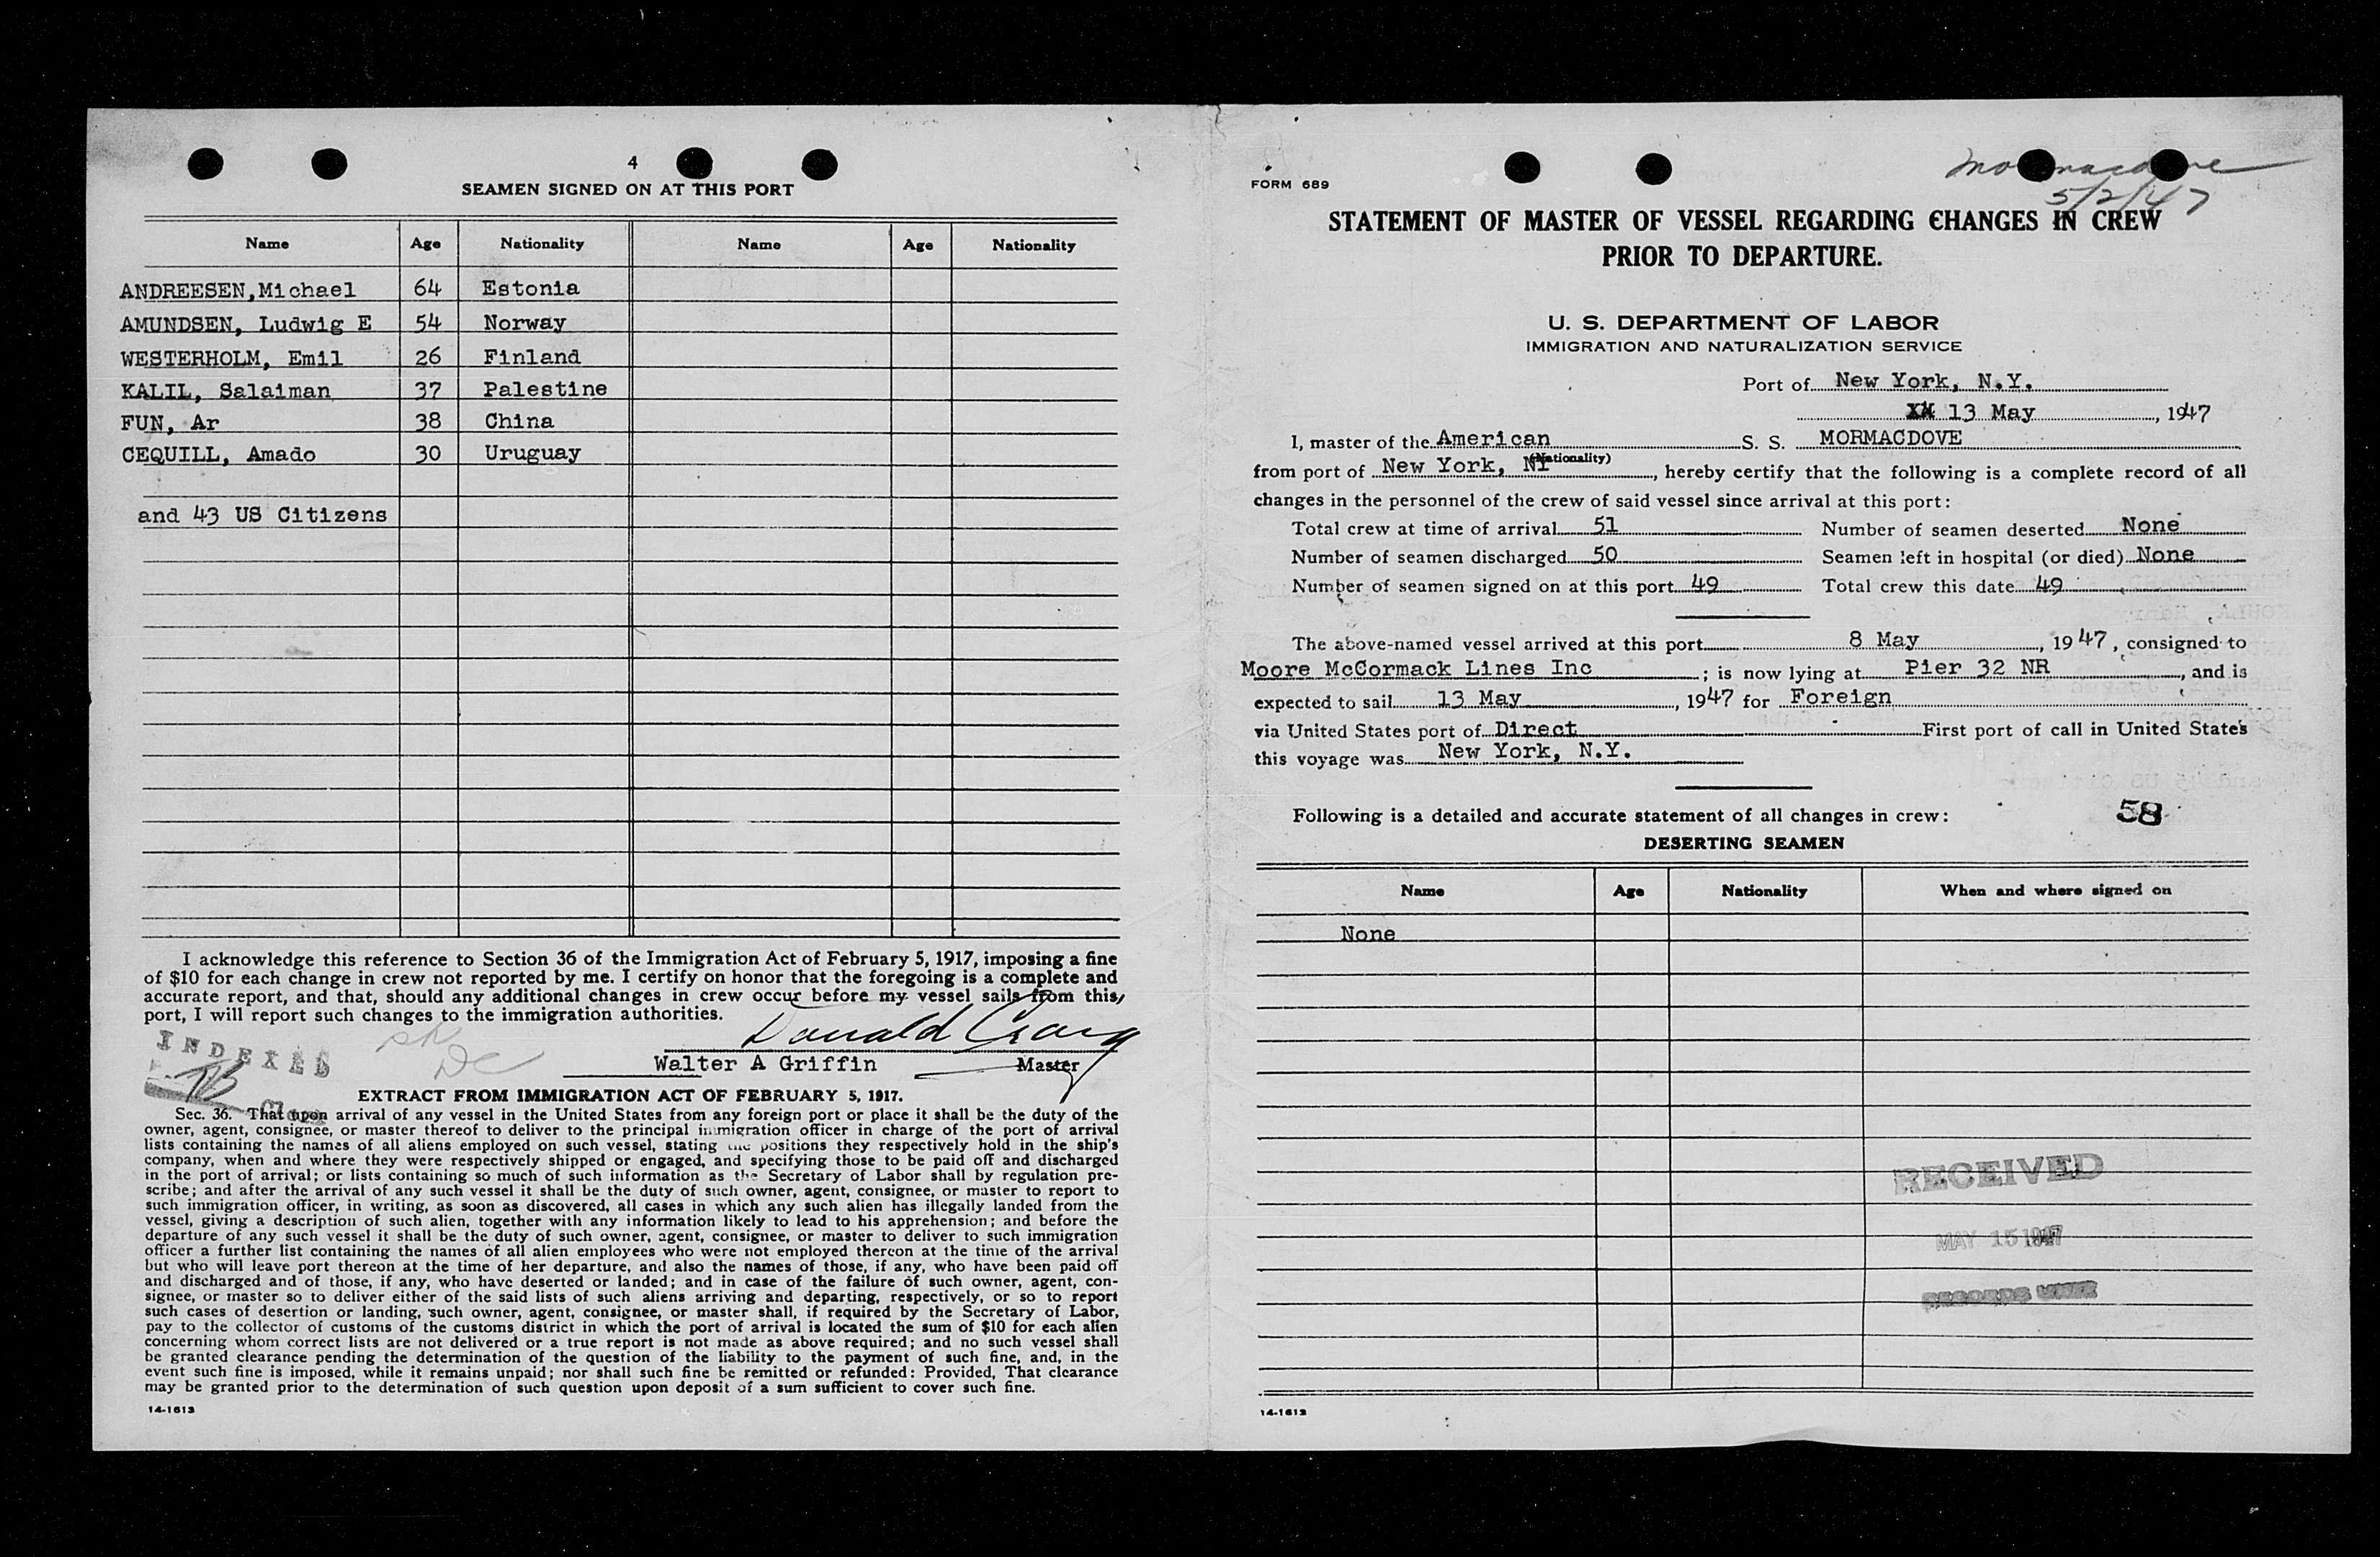 4
SEAMEN SIGNED ON AT THIS PORT
Name Age Nationality Name Age Nationality
ANDREESEN,Michael 64 Estonia
AMUNDSEN, Ludwig E 54 Norway
WESTERHOLM, Emil 26 Finland
KALIL, Salaiman 37 Palestine
FUN, Ar 38 China
CEQUILL, Amado 30 Uruguay
and 43 US Citizens
I acknowledge this reference to Section 36 of the Immigration Act of February 5, 1917, imposing a fine
of $10 for each change in crew not reported by me. I certify on honor that the foregoing is a complete and
accurate report, and that, should any additional changes in crew occur before my vessel sails from this
port, I will report such changes to the immigration authorities.
Donald Craig
INDEXED
Walter A Griffin Master
EXTRACT FROM IMMIGRATION ACT OF FEBRUARY 5, 1917.
Sec. 36. That upon arrival of any vessel in the United States from any foreign port or place it shall be the duty of the
owner, agent, consignee, or master thereof to deliver to the principal immigration officer in charge of the port of arrival
lists containing the names of all aliens employed on such vessel, stating the positions they respectively hold in the ship's
company, when and where they were respectively shipped or engaged, and specifying those to be paid off and discharged
in the port of arrival; or lists containing so much of such information as the Secretary of Labor shall by regulation pre-
scribe; and after the arrival of any such vessel it shall be the duty of such owner, agent, consignee, or master to report to
such immigration officer, in writing, as soon as discovered, all cases in which any such alien has illegally landed from the
vessel, giving a description of such alien, together with any information likely to lead to his apprehension; and before the
departure of any such vessel it shall be the duty of such owner, agent, consignee, or master to deliver to such immigration
officer a further list containing the names of all alien employees who were not employed thereon at the time of the arrival
but who will leave port thereon at the time of her departure, and also the names of those, if any, who have been paid off
and discharged and of those, if any, who have deserted or landed; and in case of the failure of such owner, agent, con-
signee, or master so to deliver either of the said lists of such aliens arriving and departing, respectively, or so to report
such cases of desertion or landing, such owner, agent, consignee, or master shall, if required by the Secretary of Labor,
pay to the collector of customs of the customs district in which the port of arrival is located the sum of $10 for each alien
concerning whom correct lists are not delivered or a true report is not made as above required; and no such vessel shall
be granted clearance pending the determination of the question of the liability to the payment of such fine, and, in the
event such fine is imposed, while it remains unpaid; nor shall such fine be remitted or refunded: Provided, That clearance
may be granted prior to the determination of such question upon deposit of a sum sufficient to cover such fine.
14-1613
Mormacdove
5/2/47
FORM 689
STATEMENT OF MASTER OF VESSEL REGARDING CHANGES IN CREW
PRIOR TO DEPARTURE.
U. S. DEPARTMENT OF LABOR
IMMIGRATION AND NATURALIZATION SERVICE
Port of New York, N.Y.
13 May, 1947
I, master of the American S. S. MORMACDOVE
(Nationality)
from port of New York, NY, hereby certify that the following is a complete record of all
changes in the personnel of the crew of said vessel since arrival at this port:
Total crew at time of arrival 51 Number of seamen deserted None
Number of seamen discharged 50 Seamen left in hospital (or died) None
Number of seamen signed on at this port 49 Total crew this date 49
The above-named vessel arrived at this port 8 May, 1947, consigned to
Moore McCormack Lines Inc; is now lying at Pier 32 NR, and is
expected to sail 13 May, 1947 for Foreign
via United States port of Direct First port of call in United States
this voyage was New York, N.Y.
Following is a detailed and accurate statement of all changes in crew: 58
DESERTING SEAMEN
Name Age Nationality When and where signed on
None
RECEIVED
MAY 15 1947
RECORDS UNIT
14-1613